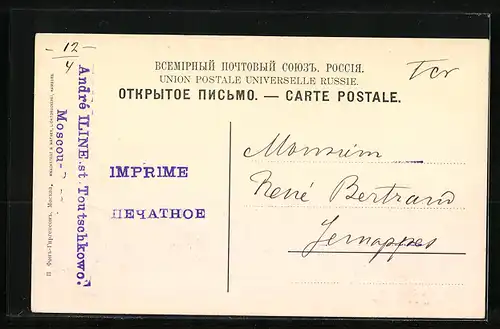 12
4
Tcr
ВСЕМІРНЫЙ ПОЧТОВЫЙ СОЮЗЪ. РОССІЯ.
UNION POSTALE UNIVERSELLE RUSSIE.
ОТКРЫТОЕ ПИСЬМО. — CARTE POSTALE.
André ILINE. st. Toutschkowo.
Moscou-
IMPRIME
ПЕЧАТНОЕ
Monsieur
René Bertrand
Jemappes
П Фонъ-Гиргенсонъ, Москва,